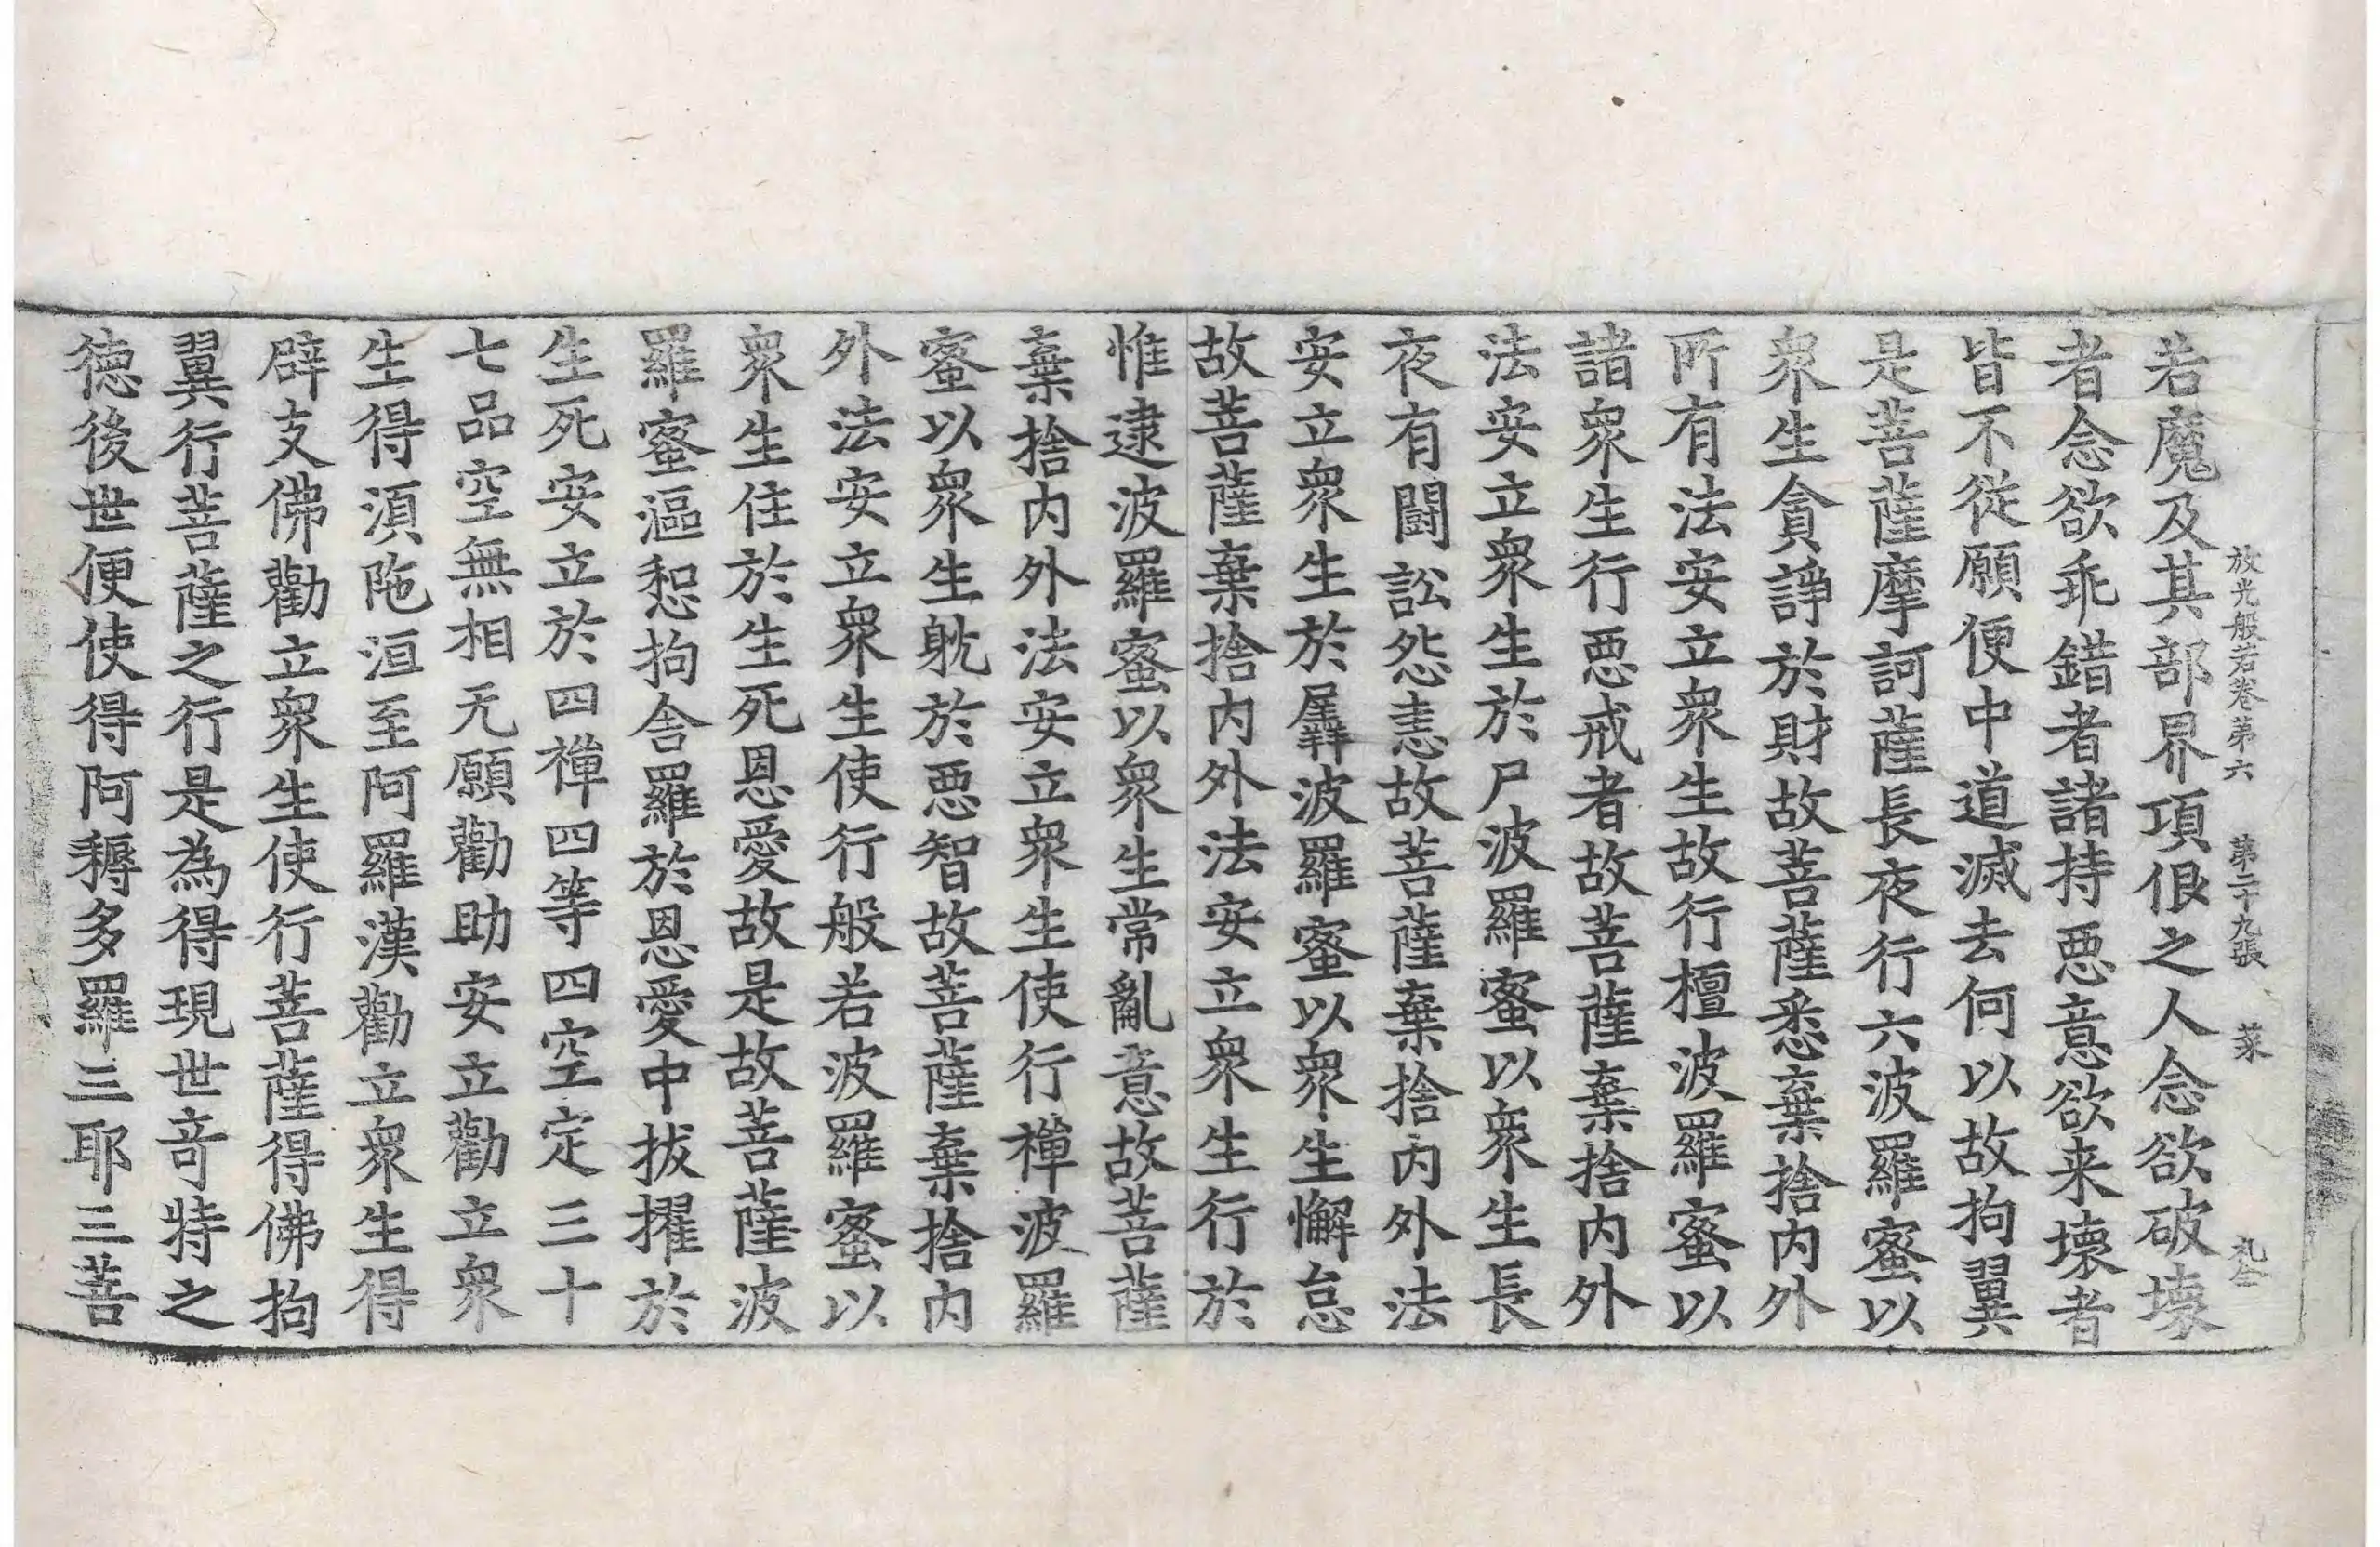 放光般若卷第六 第二十九張 菜
若魔及其部界項佷之人念欲破壞
者念欲乖錯者諸持惡意欲来壞者
皆不從願便中道滅去何以故拘翼
是菩薩摩訶薩長夜行六波羅蜜以
衆生貪諍於財故菩薩悉棄捨内外
所有法安立衆生故行檀波羅蜜以
諸衆生行惡戒者故菩薩棄捨内外
法安立衆生於尸波羅蜜以衆生長
夜有鬪訟怨恚故菩薩棄捨内外法
安立衆生於羼波羅蜜以衆生懈怠
故菩薩棄捨内外法安立衆生行於
惟逮波羅蜜以衆生常亂意故菩薩
棄捨内外法安立衆生使行禪波羅
蜜以衆生躭於惡智故菩薩棄捨内
外法安立衆生使行般若波羅蜜以
衆生住於生死恩愛故是故菩薩波
羅蜜漚惒拘舍羅於恩愛中拔擢於
生死安立於四禪四等四空定三十
七品空無相无願勸助安立勸立衆
生得須陁洹至阿羅漢勸立衆生得
辟支佛勸立衆生使行菩薩得佛拘
翼行菩薩之行是為得現世奇特之
德後世便使得阿耨多羅三耶三菩